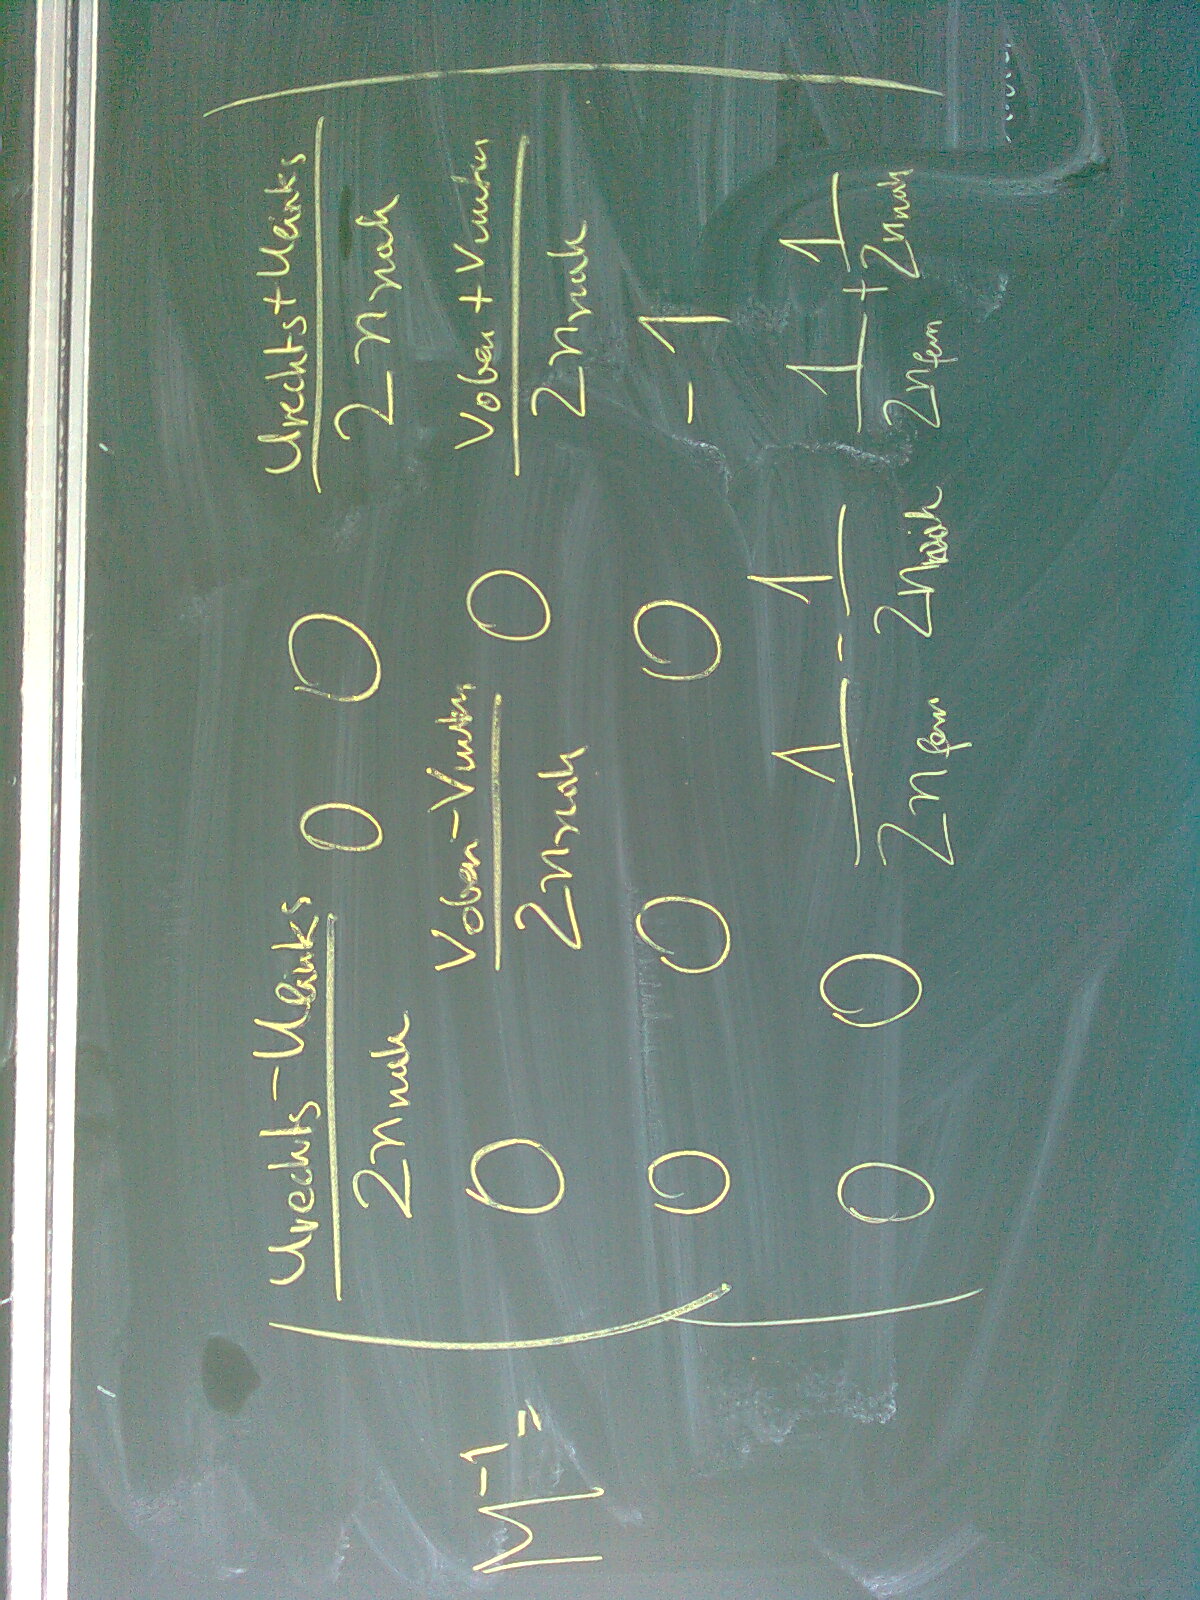 u_rechts - u_links / 2n_nah   0   0   u_rechts + u_links / 2n_nah
M^-1 =   0   v_oben - v_unten / 2n_nah   0   v_oben + v_unten / 2n_nah
0   0   0   -1
0   0   1 / 2n_fern - 1 / 2n_nah   1 / 2n_fern + 1 / 2n_nah